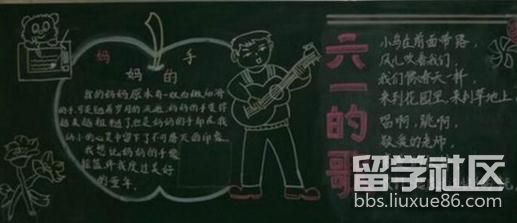 妈 手
妈 的
我的妈妈原本有一双白嫩细滑
的手,可是随着岁月的流逝,妈妈的手变得
越来越粗糙了,但是妈妈的手却在我
幼小的心灵中留下了不可磨灭的印象。
我想让妈妈的手象
摇篮,伴我度过美好
的童年。
六一的歌
小鸟在前面带路,
风儿吹着我们,
我们像春天一样,
来到花园里,来到草地上
唱啊,跳啊,
敬爱的老师,
留学社区
bbs.liuxue86.com